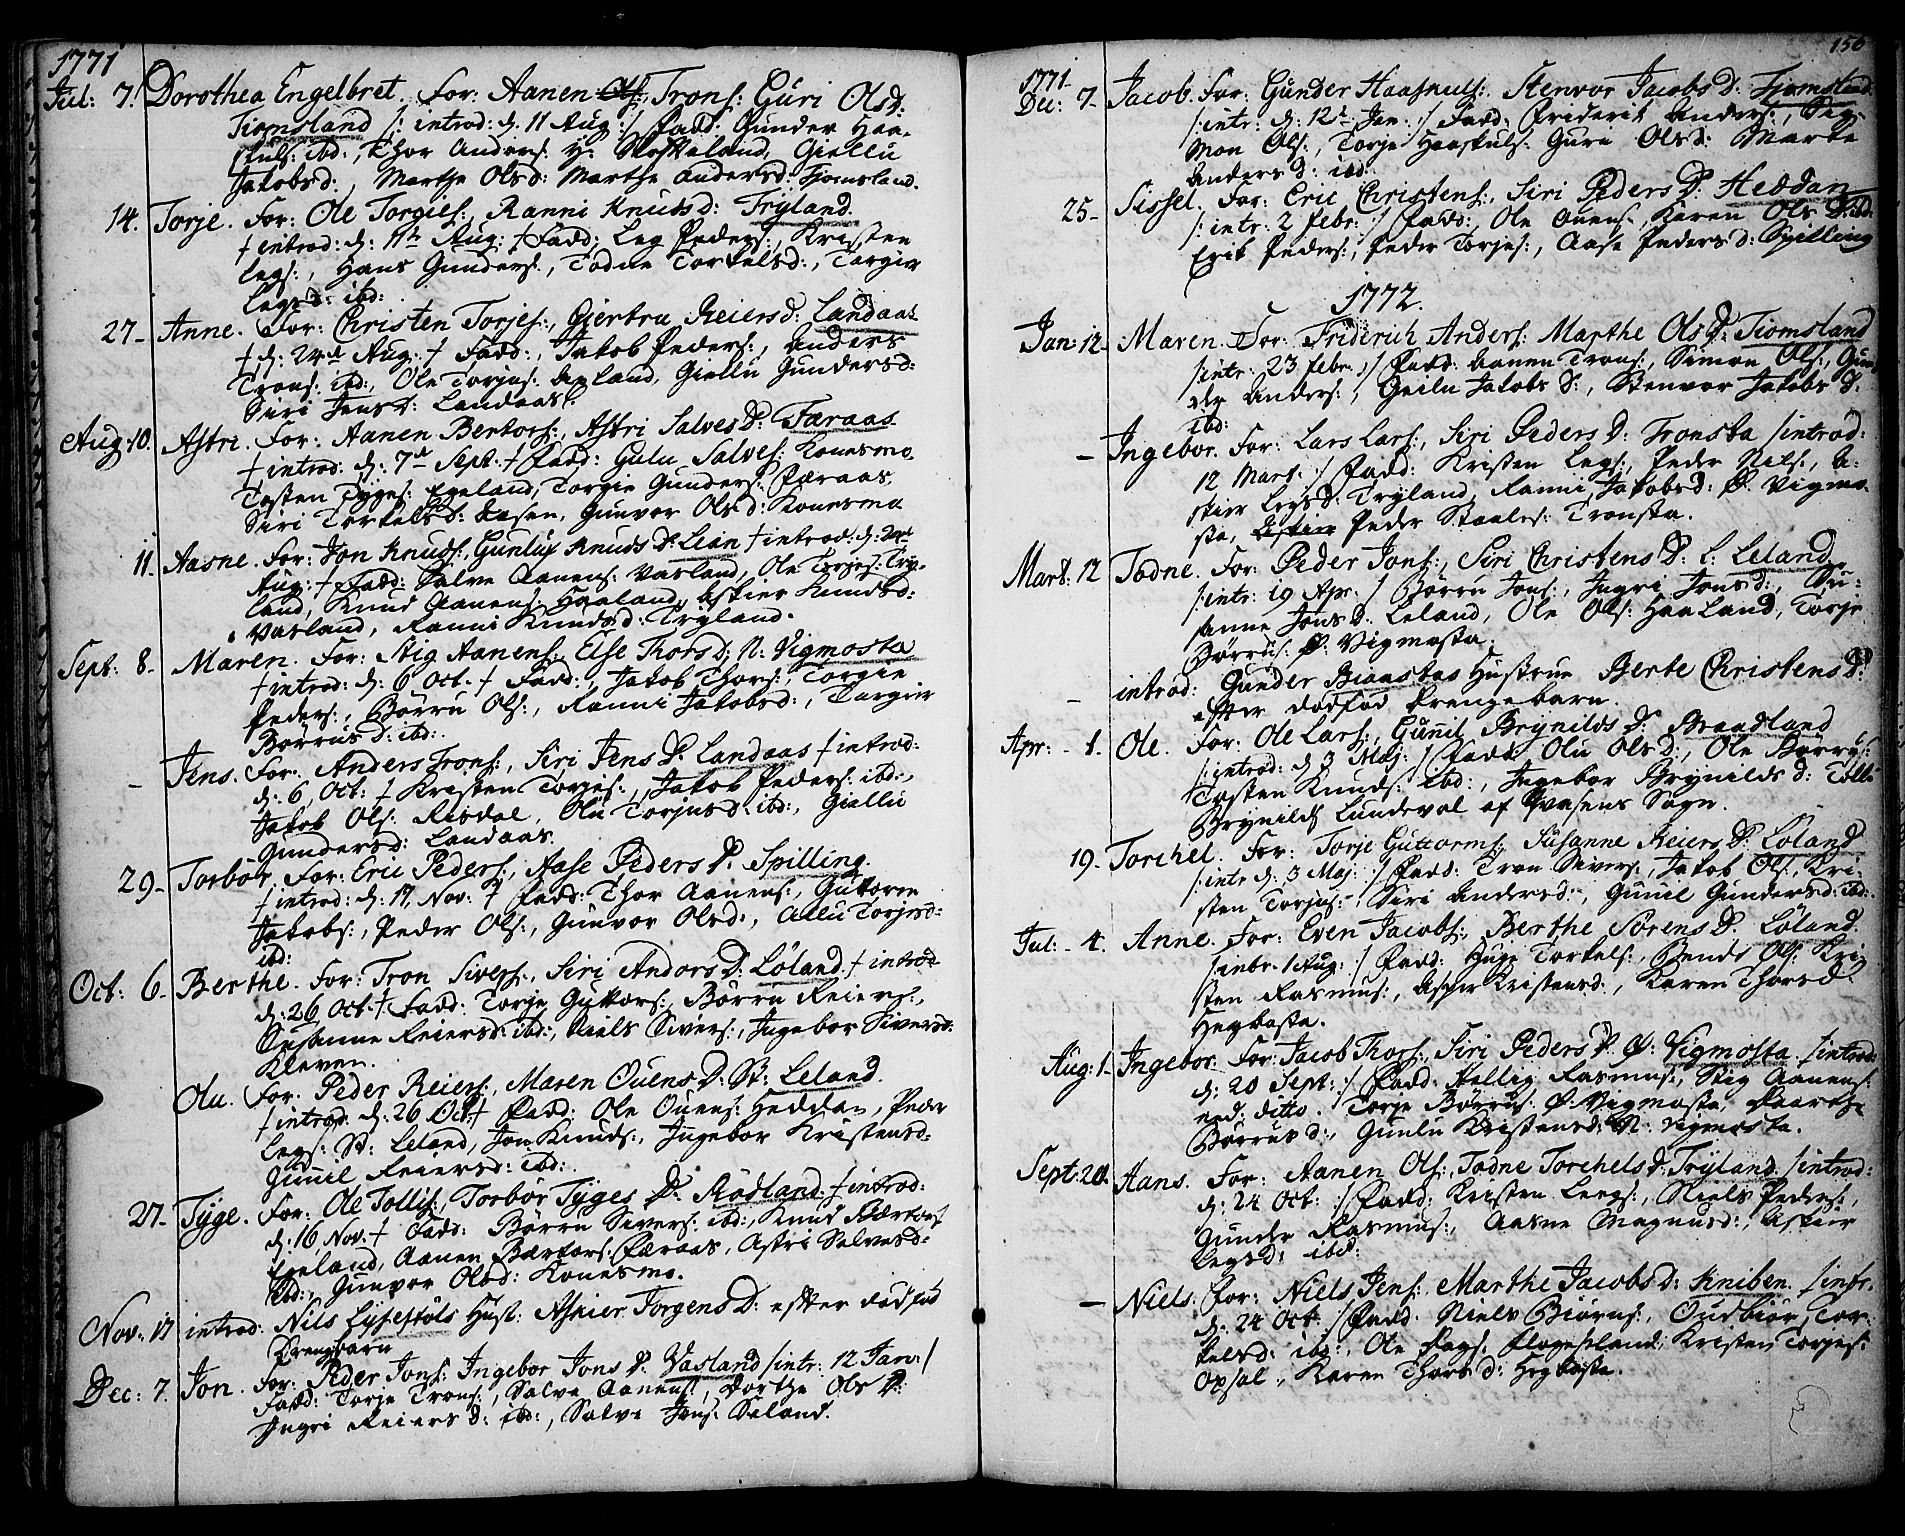 1771
Jul: 7. Dorothea Engelbret. For: Aanen Trons: Guri Olsd:
Tiomsland /: introd: d: 11 Aug: / Fadd: Gunder Haa-
skuls: ibd:, Thor Anders: Giellu
Jakobsd:, Marthe Olsd: Marthe Andersd: Tiomsland.
14. Torje. For: Ole Torgies:, Ranni Knudsd: Tryland.
† introd: d: 11te Aug: † Fadd: Leg Peders:, Kristen
Legs:, Hans Gunders:, Todne Torkelsd:, Torgier
Legsd: ibd:
27- Anne. For: Christen Torjes:, Gjertru Reiersd: Landaas
† d: 24de Aug: † Fadd:, Jakob Peders:, Anders
Trons: ibd:, Ole Torjus: Giellu Gundersd:
Siri Jensd: Landaas.
Aug: 10. Astri. For: Aanen Bertors:, Astri Salvesd: Færaas
† introd: d: 7de Sept: † Fadd: Gulu Salves: Konesmo
Tosten Tyges: Egeland, Torgie Gunders: Færaas,
Siri Torkelsd: Aasen, Gunvor Olsd: Konesmo
11. Aasne. For: Jon Knuds:, Gunlug Knudsd: Lian † introd: d:
Aug: † Fadd: Salve Aanens: Vasland, Ole Torjes: Try-
land, Knud Aanens: Haaland, Askier Knudsd:
Vasland, Ranni Knudsd: Tryland.
Sept: 8. Maren. For: Stig Aanens:, Else Thorsd: N: Vigmosta
† introd: d: 6 Oct: † Fadd:, Jakob Thors:, Torgie
Peders:, Börru Ols:, Ranni Jakobsd:, Torgier
Börrusd: ibd:.
- Jens. For: Anders Trons:, Siri Jensd: Landaas † introd:
d: 6 Oct: † Kristen Torjes:, Jakob Peders: ibd:,
Jakob Ols: Risdal, Olu Torjusd: ibd:, Giellu
Gundersd: Landaas.
29- Torbör. For: Eric Peders:, Aase Pedersd: Spilling.
† introd: d: 17, Nov: † Fadd: Thor Aanens:, Guttorm
Jakobs:, Peder Ols:, Gunvor Olsd:, Allu Torjesd:
ibd:
Oct: 6. Berthe. For: Tron Sivers:, Siri Andersd: Löland † introd
d: 26 Oct: † Fadd: Torje Guttors:, Börru Reiers:,
Susanne Reiersd: ibd:, Niels Sivers:, Ingebor Siversd:
Kleven.
Olu. For: Peder Reiers:, Maren Ouensd: St: Leland.
† introd: d: 26 Oct: † Fadd: Ole Ouens: Heddan, Peder
Legs: St: Leland, Jon Knuds:, Ingebor Kristensd:
Guuil Reiersd: ibd:.
27- Tÿge. For: Ole Tollis:, Torbör Tÿges D: Rödland † introd:
d: 16 Nov: † Fadd: Börru Sivers: ibd:, Knud Bertors
Egeland, Aanen Bertors: Færaas, Astri Salvesd:
ibd:, Gunvor Olsd: Konesmo.
Nov: 17 introd: Nils Lysestöls Hust: Askier Jorgensd: efter dödföd
Drengebarn
Dec: 7. Jon. For: Peder Jons: Ingebor Jonsd: Vasland /intr: 12 Jan: /
Fadd: Torje Trons:, Salve Aanens:, Dorthe Olsd:
Ingri Reiersd: ibd:, Salve Jons: Seland.
156
1771.
Dec: 7- Jacob. For: Gunder Haaskuls: Stenvor Jacobsd: Tiomsland
/: intr: d: 12te Jan: / Fadd: Friderik Anders:, Sig-
mon Ols:, Torje Haaskuls: Guri Olsd: Marte
Andersd: ibd:
25- Sissel. For: Eric Christens:, Siri Pedersd: Heddan
/: intr: 2 febr: / Fadd: Ole Ouens:, Karen Olsd: ibd:
Erik Peders:, Peder Torjes:, Aase Pedersd: Spilling
1772.
Jan: 12- Maren. For: Friderich Anders: Marthe Olsd: Tiomsland
/intr: 23 febr: / Fadd: Aanen Trons:, Simon Ols:, Gun-
der Anders:, Geilu Jakobsd:, Stenvor Jakobsd:
ibd:
- Ingebor. For: Lars Lars:, Siri Pedersd: Tronsta /introd:
12 Mart: / Fadd: Kristen Legs:, Peder Nils:, A-
skier Legsd: Tryland, Ranni Jakobsd: Ø: Vigmo-
sta, Peder Staales: Tronsta.
Mart: 12 Todne. For: Peder Jons:, Siri Christensd: L: Leland
/: intr: 19 Apr: / Börru Jons:, Ingri Jonsd:, Su-
sanne Jonsd: Leland, Ole Ols: Haaland, Torje
Börrus: Ø: Vigmosta.
- introd: Gunder Biaastas Hustrue Berte Christensd:
efter dödföd Drengebarn.
Apr: - 1. Ole. For: Ole Lars:, Gunil Brynildsd: Braadland
/: introd: d 3 Maj: / Fadd: Olu Olsd:, Ole Börrus:
Tosten Knuds: ibd:, Ingebor Brynildsd:
Brynilds Lundevol af Qvasens Sogn.
19- Torchel. For: Torje Guttorms:, Susanne Reiersd: Löland
/: intr d: 3 Maj: / Fadd: Tron Sivers:, Jakob Ols:, Kri-
sten Torjus: Siri Andersd:, Guuil Gundersd: ibd:.
Jul: - 4. Anne. For: Even Jacobs:, Berthe Sörensd: Löland.
/: intr. 1 Aug: / Fadd: Tyge Torkels:, Bendt Ols: Kri-
sten Rasmus:, Asper Kristensd:, Karen Thorsd:
Hegbosta.
Aug: 1- Ingebor. For: Jacob Thors:, Siri Pedersd: Ø: Vigmosta /introd:
d: 20 Sept: / Fadd: Rasmus:, Stig Aanens:
ned: ditto. Torje Börrus: Ø: Vigmosta, Marthe
Börrusd:, Gunlu Kristensd: N: Vigmosta.
Sept: 20. Hans. For: Aanen Ols:, Todne Torchelsd: Trÿland. /introd:
d: 24 Oct: / Fadd: Kristen Legs:, Niels Peders:,
Gunder Rasmus:, Aasne Magnusd:, Askier
Legsd: ibd:
- Niels. For: Niels Jens:, Marthe Jacobsd: Kniben. /intr.
d: 24 Oct: / Fadd: Niels Biörns:, Oudbiör Tor-
kelsd: ibd:, Ole Kristen Torjes:
Opsal, Karen Thorsd: Hegbosta.